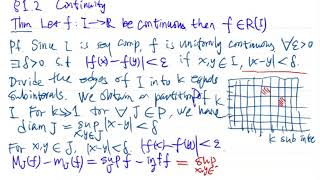 §1.2 Continuity
Thm Let f: I→R be continuous then f∈R(I)
Pf Since I is seq comp, f is uniformly continuous ∀ε>0
∃δ>0 s.t. |f(x)-f(y)|<ε if x,y∈I, |x-y|<δ.
Divide the edges of I into k equal
subintervals. We obtain a partition P
of I. For k>>1 for ∀ J∈P, we have
diam J = sup |x-y| < δ
x,y∈J
For x,y∈J, |x-y|<δ, |f(x)-f(y)|<ε
M_J(f) - m_J(f) = sup_J f - inf_J f = sup
x,y∈
k sub inte